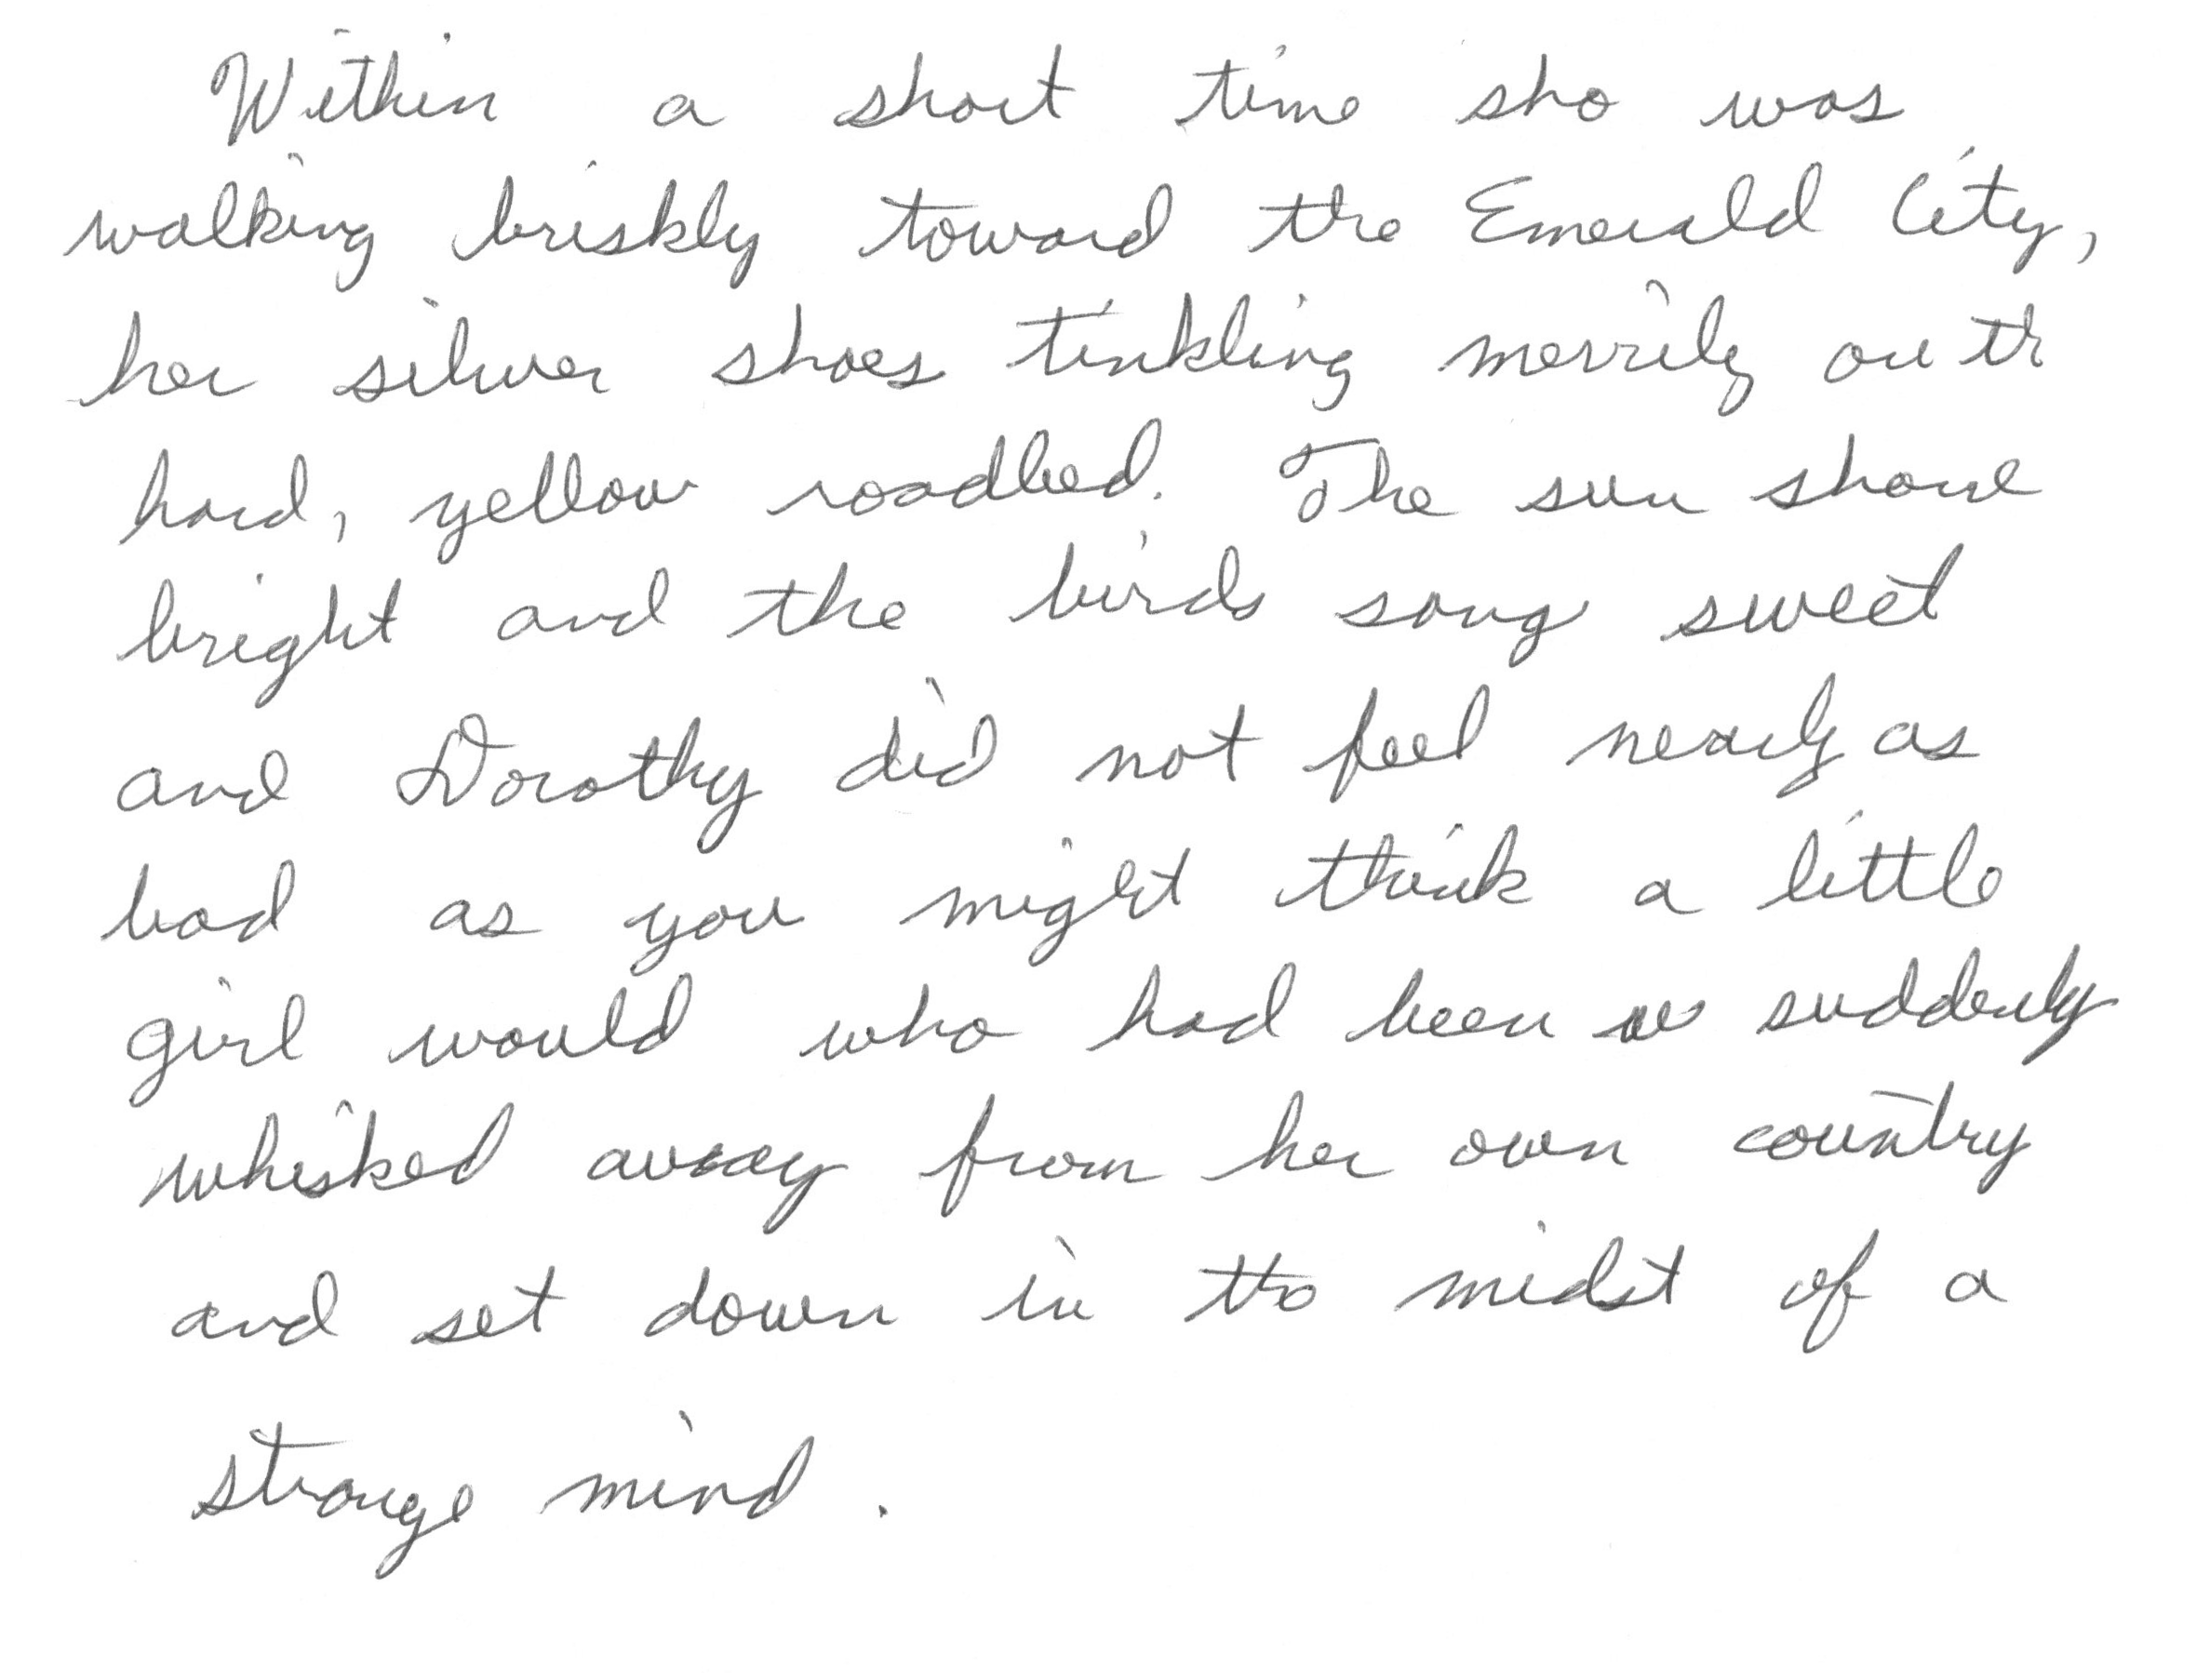 Within a short time she was
walking briskly toward the Emerald City,
her silver shoes tinkling merrily on th
hard, yellow roadbed. The sun shone
bright and the birds song sweet
and Dorothy did not feel nearly as
bad as you might think a little
girl would who had been suddenly
whisked away from her own country
and set down in the midst of a
strange mind.